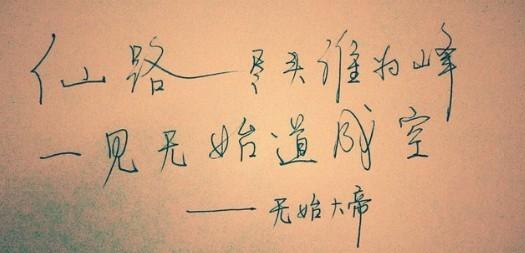 仙路尽头谁为峰
一见无始道成空
——无始大帝